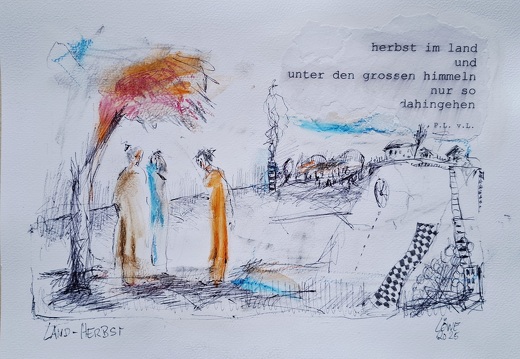 herbst im land
und
unter den grossen himmeln
nur so
dahingehen
F.L. v.L.
LAND-HERBST
LÖWE